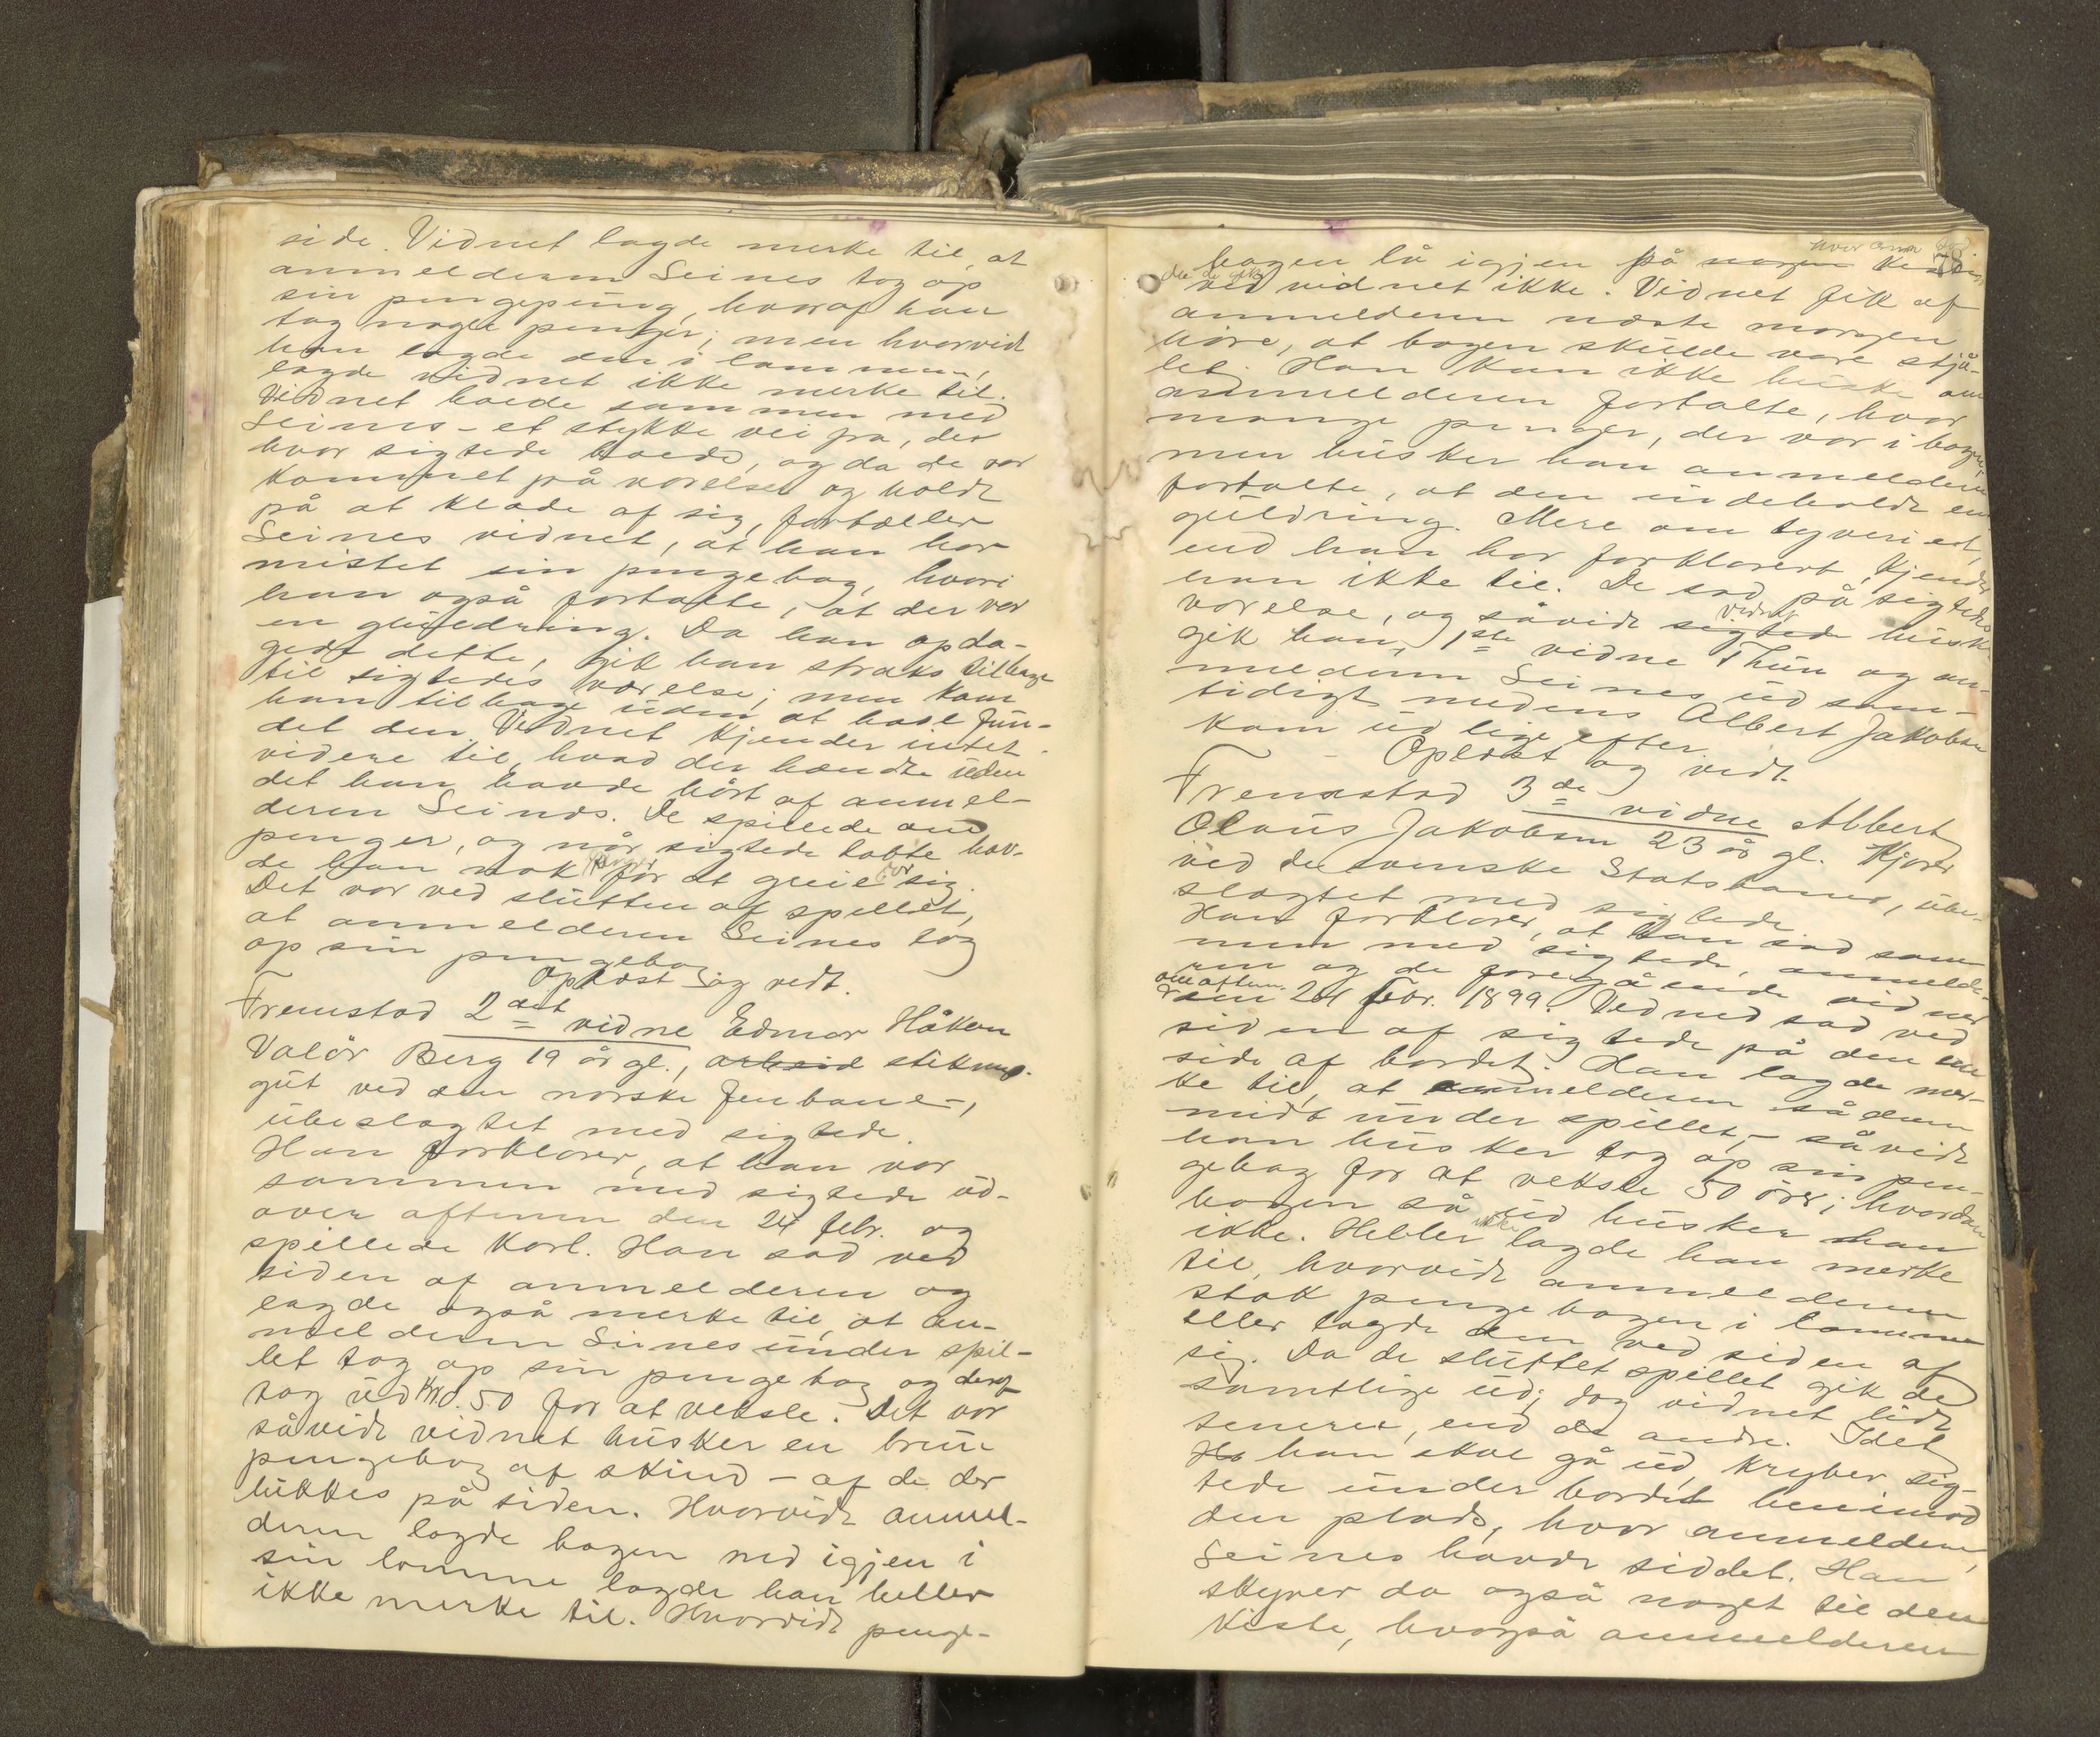 side. Vidnet lagde merke til, at
anmelderen Seines tog op
sin pengepung, hvoraf han
tog nogle penger; men hvorvidt
han lagde den i lommen,
lagde vidnet ikke merke til.
Vidnet boede sammen med
Seines – et stykke vei fra, der
hvor sigtede boede, og da de var
kommet på værelset og holdt
på at klæde af sig, fortæller
Seines vidnet, at han har
mistet sin pengebog, hvori
han også fortalte, at der var
en guldring. Da han opda-
gede dette, gik han straks tilbage
til sigtedes værelse; men kom
han tilbage uden at have fun-
det den. Vidnet kjender intet
videre til, hvad der hændte uden
det han havde hørt af anmel-
deren Seines. De spillede om
penger, og når sigtede tabte hav-
de han nok penger for at greie for sig.
Det var ved slutten af spillet,
at anmelderen Seines tog
op sin pengebog.
Oplæst og vedt.
Fremstod 2det vidne Edmar Håkon
Valør Berg 19 år gl., arbeid stikning-
gut ved den norske Jernbane,
ubeslægtet med sigtede.
Han forklarer, at han var
sammen med sigtede ud-
over aftenen den 24 febr. og
spillede kort. Han sad ved
siden af anmelderen og
lagde også merke til, at an-
melderen Seines under spil-
let tog op sin pengebog og deraf
tog ud Kr. 0.50 for at veksle. Det var
såvidt vidnet husker en brun
pengebog af skind – af de der
lukkes på siden. Hvorvidt anmel-
deren lagde bogen ned igjen i
sin lomme lagde han heller
ikke merke til. Hvorvidt penge-
hvor Anm 78
bogen lå igjen på nogen
da de gik
ved vidnet ikke. Vidnet fik af
anmelderen næste morgen
høre, at bogen skulde være stjå-
let. Han kan ikke huske om
anmelderen fortalte, hvor
mange penger, der var i bogen,
men husker han anmelderen
fortalte, at den indeholdt en
guldring. Mere om tyveriet,
end han har forklaret, kjender
han ikke til. De sad på sigtedes
værelse, og såvidt sigtede vidnet husker
gik han, 1ste vidne Thun og an-
melderen Seines ud sam-
tidigt medens Albert Jakobsen
kom ud lige efter.
Oplæst og vedt.
Fremstod 3de vidne Albert
Olaus Jakobsen 23 år gl. Kjører
ved de svenske Statsbaner, ube-
slægtet med sigtede.
Han forklarer, at han sad sam-
men med sigtede, anmelde-
ren og de foregående vidner
om aftenen
den 24 Febr. 1899. Vidnet sad ved
siden af sigtede på den ene
side af bordet. Han lagde mer-
ke til, at anmelderen sådan
midt under spillet, – såvidt
han husker tog op sin pen-
gebog for at veksle 50 ører; hvordan
bogen så ud husker han
ikke. Heller ikke lagde han merke
til, hvorvidt anmelderen
stak pengebogen i lommen
eller lagde den ved siden af
sig. Da de sluttet spillet gik de
samtlige ud; dog vidnet lidt
senere, end de andre. Idet
Ha han skal gå ud, kryber sig-
tede under bordet henimod
den plads, hvor anmelderen,
Seines havde siddet. Han
skyver da også noget til den
kiste, hvorpå anmelderen